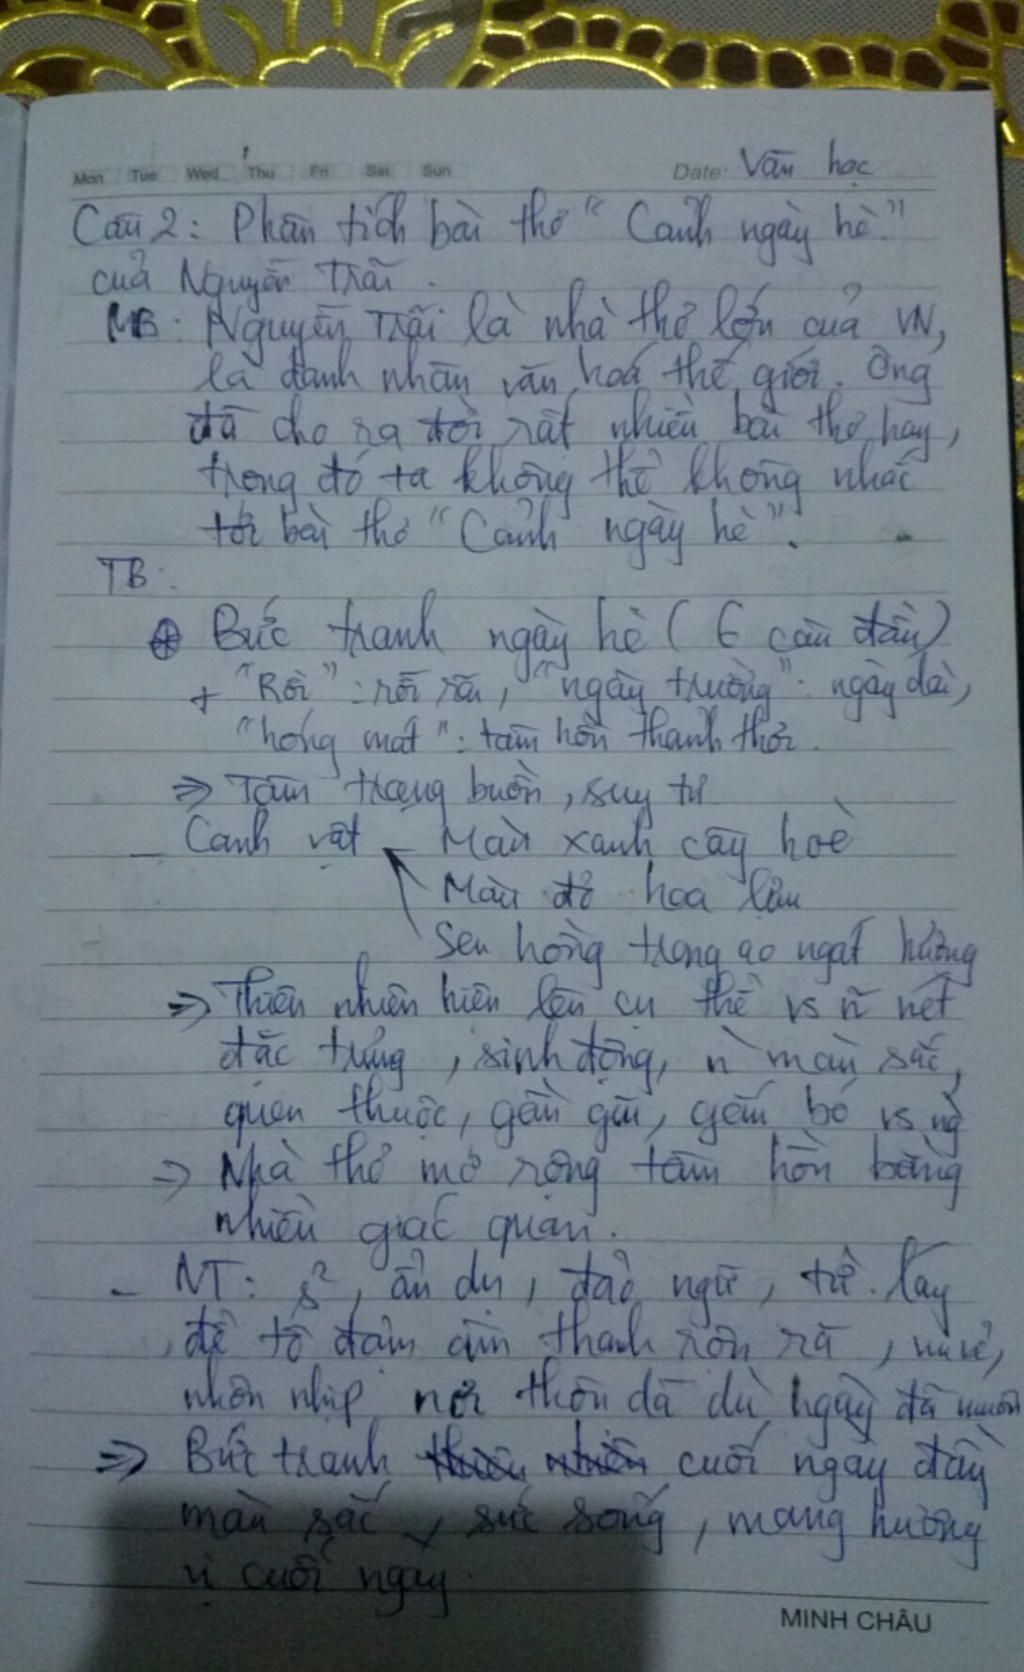 Mon Tue Wed Thu Fri Sat Sun Date: Văn học
Câu 2: Phân tích bài thơ "Cảnh ngày hè"
của Nguyễn Trãi.
MB: Nguyễn Trãi là nhà thơ lớn của VN,
là danh nhân văn hoá thế giới. Ông
đã cho ra đời rất nhiều bài thơ hay,
trong đó ta không thể không nhắc
tới bài thơ "Cảnh ngày hè".
TB:
Bức tranh ngày hè (6 câu đầu)
+ "Rồi": rỗi rãi, "ngày trường": ngày dài,
"hóng mát": tâm hồn thanh thơi.
=> Tâm trạng buồn, suy tư
- Cảnh vật Màu xanh cây hoè
Màu đỏ hoa lựu
Sen hồng trong ao ngát hương
=> Thiên nhiên hiện lên cụ thể vs ~ nét
đặc trưng, sinh động, n` màu sắc,
quen thuộc, gần gũi, gắn bó vs ng`
=> Nhà thơ mở rộng tâm hồn bằng
nhiều giác quan.
- NT: s², ẩn dụ, đảo ngữ, từ láy
để tô đậm âm thanh rộn rã, vui vẻ,
nhộn nhịp nơi thôn dã dù ngày đã muộn
=> Bức tranh cuối ngày đầy
màu sắc, sức sống, mang hương
vị cuối ngày.
MINH CHÂU